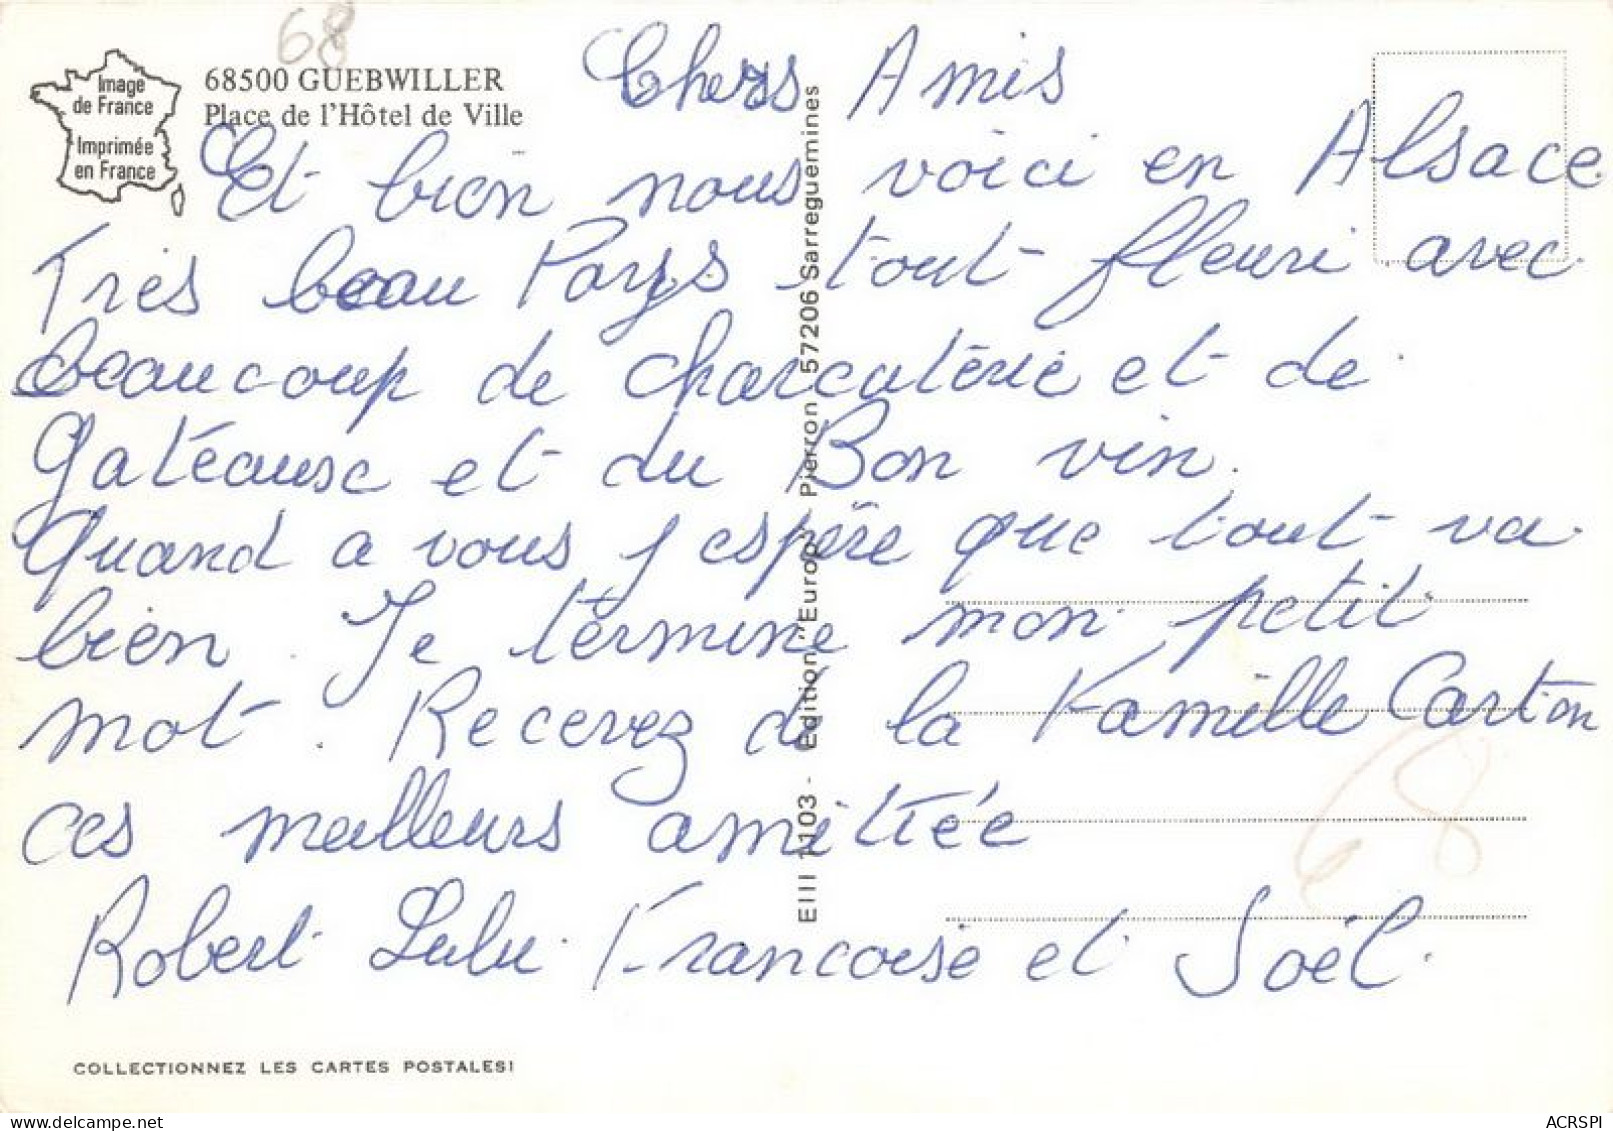 68
Image
de France
Imprimée
en France
68500 GUEBWILLER
Place de l'Hôtel de Ville
Chers Amis
Et bien nous voici en Alsace
Tres beau Pays tout fleuri avec
beaucoup de charcutérie et de
Gatéause et du Bon vin.
Quand a vous j espère que tout va
bien. Je termine mon petit
mot. Recevez de la Famille Carton
ces meilleurs amitiée
Robert Lulu Francoise et Joël.
68
EIII 1103 - Edition "Europ" Pierron 57206 Sarreguemines
COLLECTIONNEZ LES CARTES POSTALES!
ACRSPI